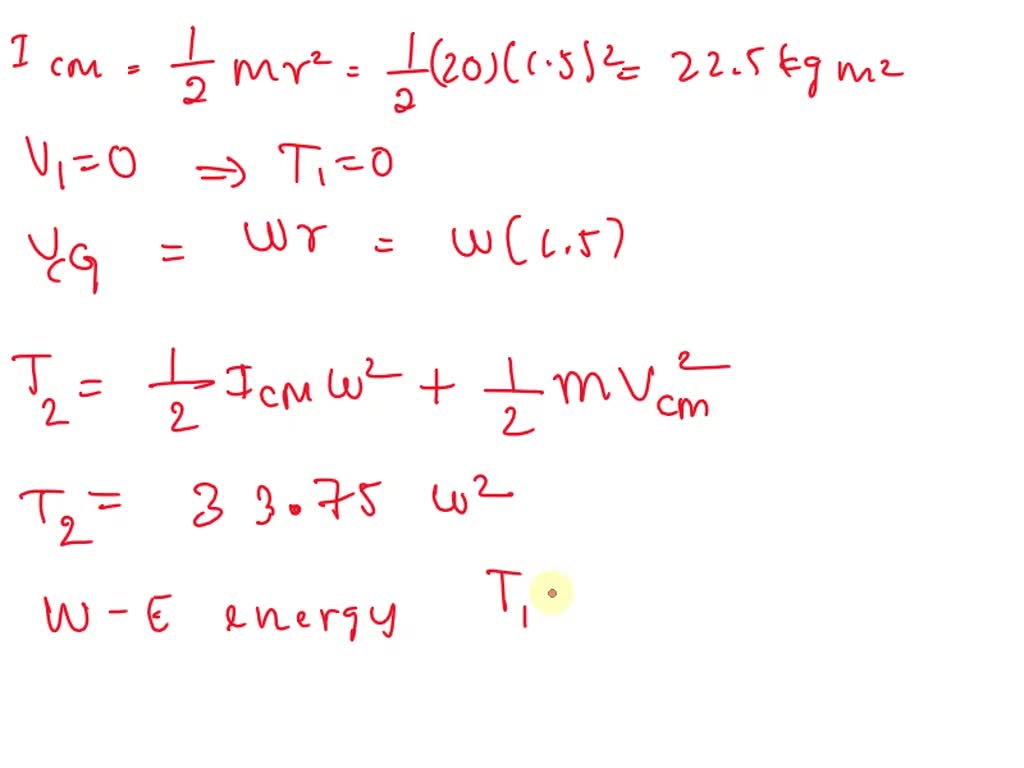 I cm = 1/2 mr² = 1/2 (20)(1.5)² = 22.5 kg m²
V₁=0 ⇒ T₁=0
V_cG = ωr = ω(1.5)
T₂ = 1/2 I_cm ω² + 1/2 m V_cm²
T₂ = 33.75 ω²
W-E energy T₁